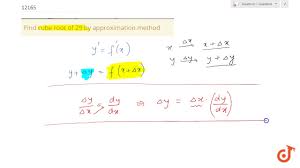 12165
Find cube root of 29 by approximation method
y' = f'(x)
x Δx x + Δx
y Δy y + Δy
y + Δy = f(x + Δx)
Δy/Δx ≈ dy/dx or Δy = Δx · (dy/dx)